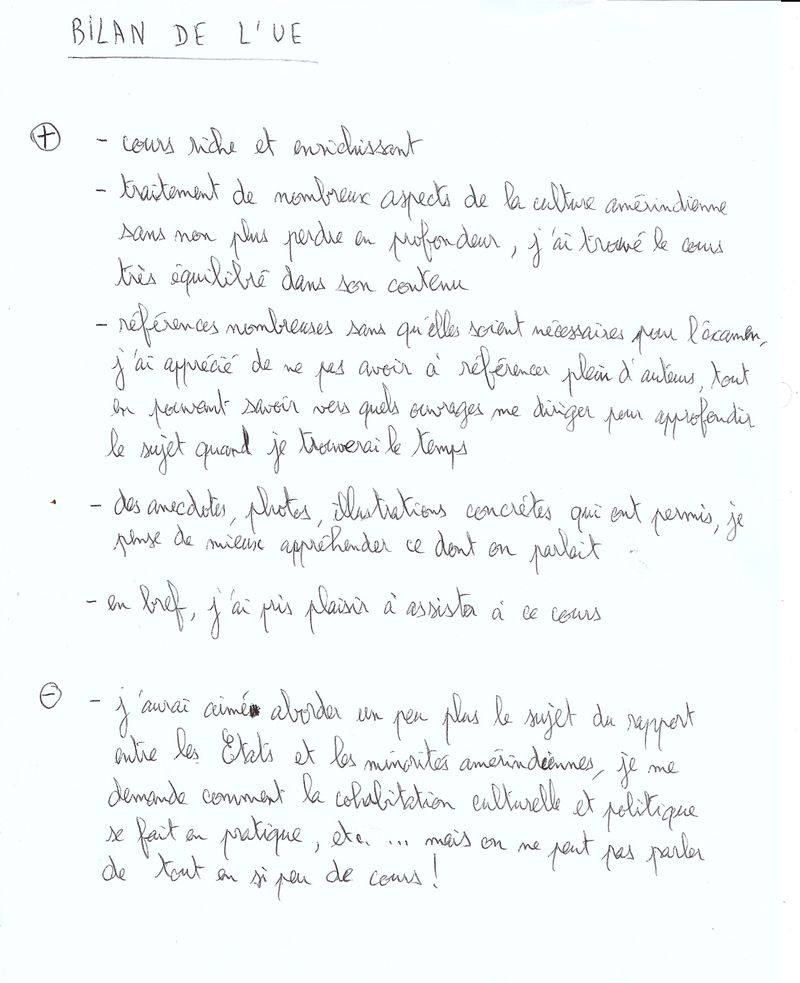 BILAN DE L'UE
⊕ - cours riche et enrichissant
- traitement de nombreux aspects de la culture amérindienne
sans non plus perdre en profondeur, j'ai trouvé le cours
très équilibré dans son contenu
- références nombreuses sans qu'elles soient nécessaires pour l'examen,
j'ai apprécié de ne pas avoir à référencer plein d'auteurs, tout
en pouvant savoir vers quels ouvrages me diriger pour approfondir
le sujet quand je trouverai le temps
- des anecdotes, photos, illustrations concrètes qui ont permis, je
pense de mieux appréhender ce dont on parlait
- en bref, j'ai pris plaisir à assister à ce cours
⊖ - j'aurai aimé aborder un peu plus le sujet du rapport
entre les Etats et les minorités amérindiennes, je me
demande comment la cohabitation culturelle et politique
se fait en pratique, etc. ... mais on ne peut pas parler
de tout en si peu de cours !